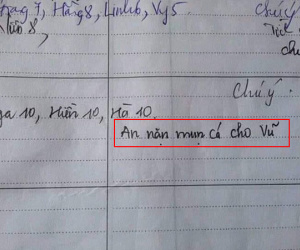 7, Hằng 8, Linh 6, Vy 5
Chú ý
8,
Chú ý.
10, Hiền 10, Hà 10.
An nặn mụn cá cho Vũ